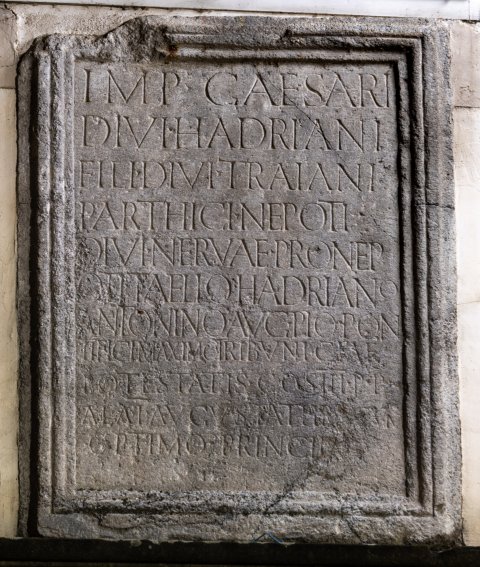 IMP·CAESARI
DIVI·HADRIANI
FILI·DIVI·TRAIANI
PARTHICI·NEPOTI
DIVI·NERVAE·PRONEP
AELIO·HADRIANO
ANTONINO·AVG·PIO·PON
TIFICI·MAXIMO·TRIBVNIC
POTESTATIS·COS
OPTIMO·PRINCIPI